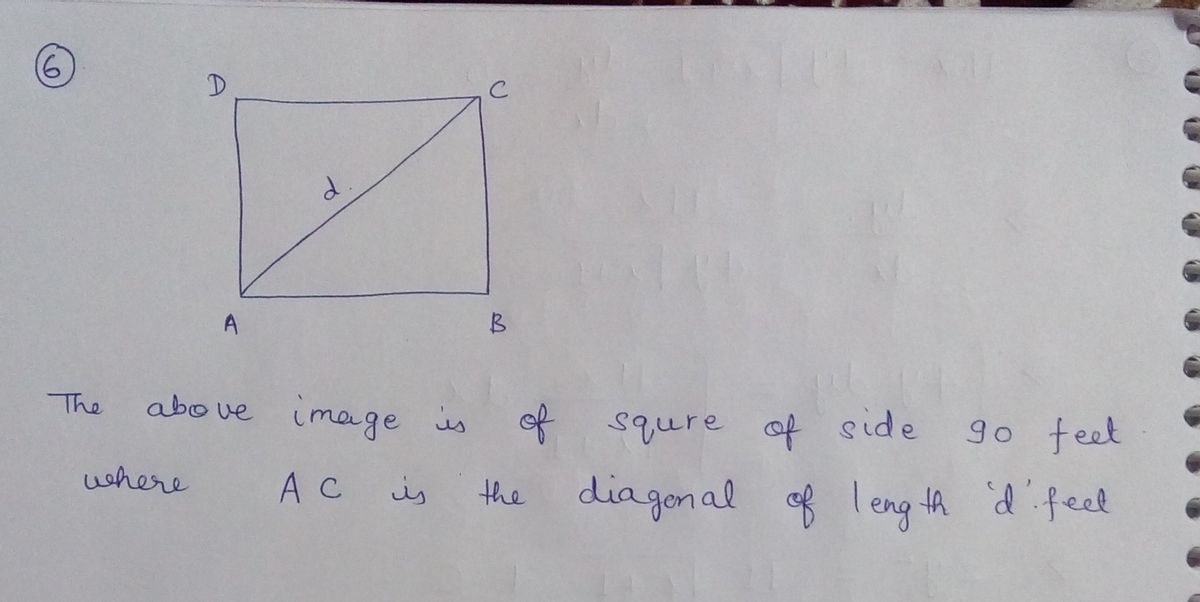 6
D C
d.
A B
The above image is of squre of side 90 feet
where AC is the diagonal of length 'd' feet